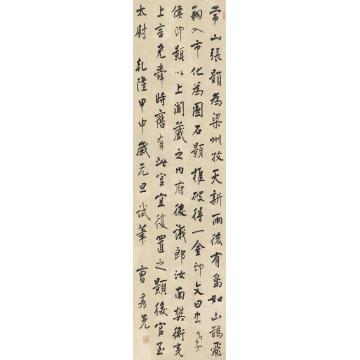 常山張顥為梁州牧天新雨後有鳥如山鵲飛
翔入市化為圓石顥推破得一金印文曰忠孝
侯印顥以上聞藏之內府後議郎汝南樊衡夷
上言堯舜時舊有此官宜復置之顥後官至
太尉 乾隆甲申歲元旦試筆 曹秀先